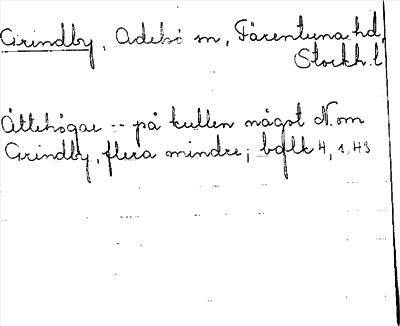 Grindby, Adelsö sn, Färentuna hd,
Stockh. l
Ättehögar -- på kullen något N. om
Grindby, flera mindre; bglk 4, 1, 43